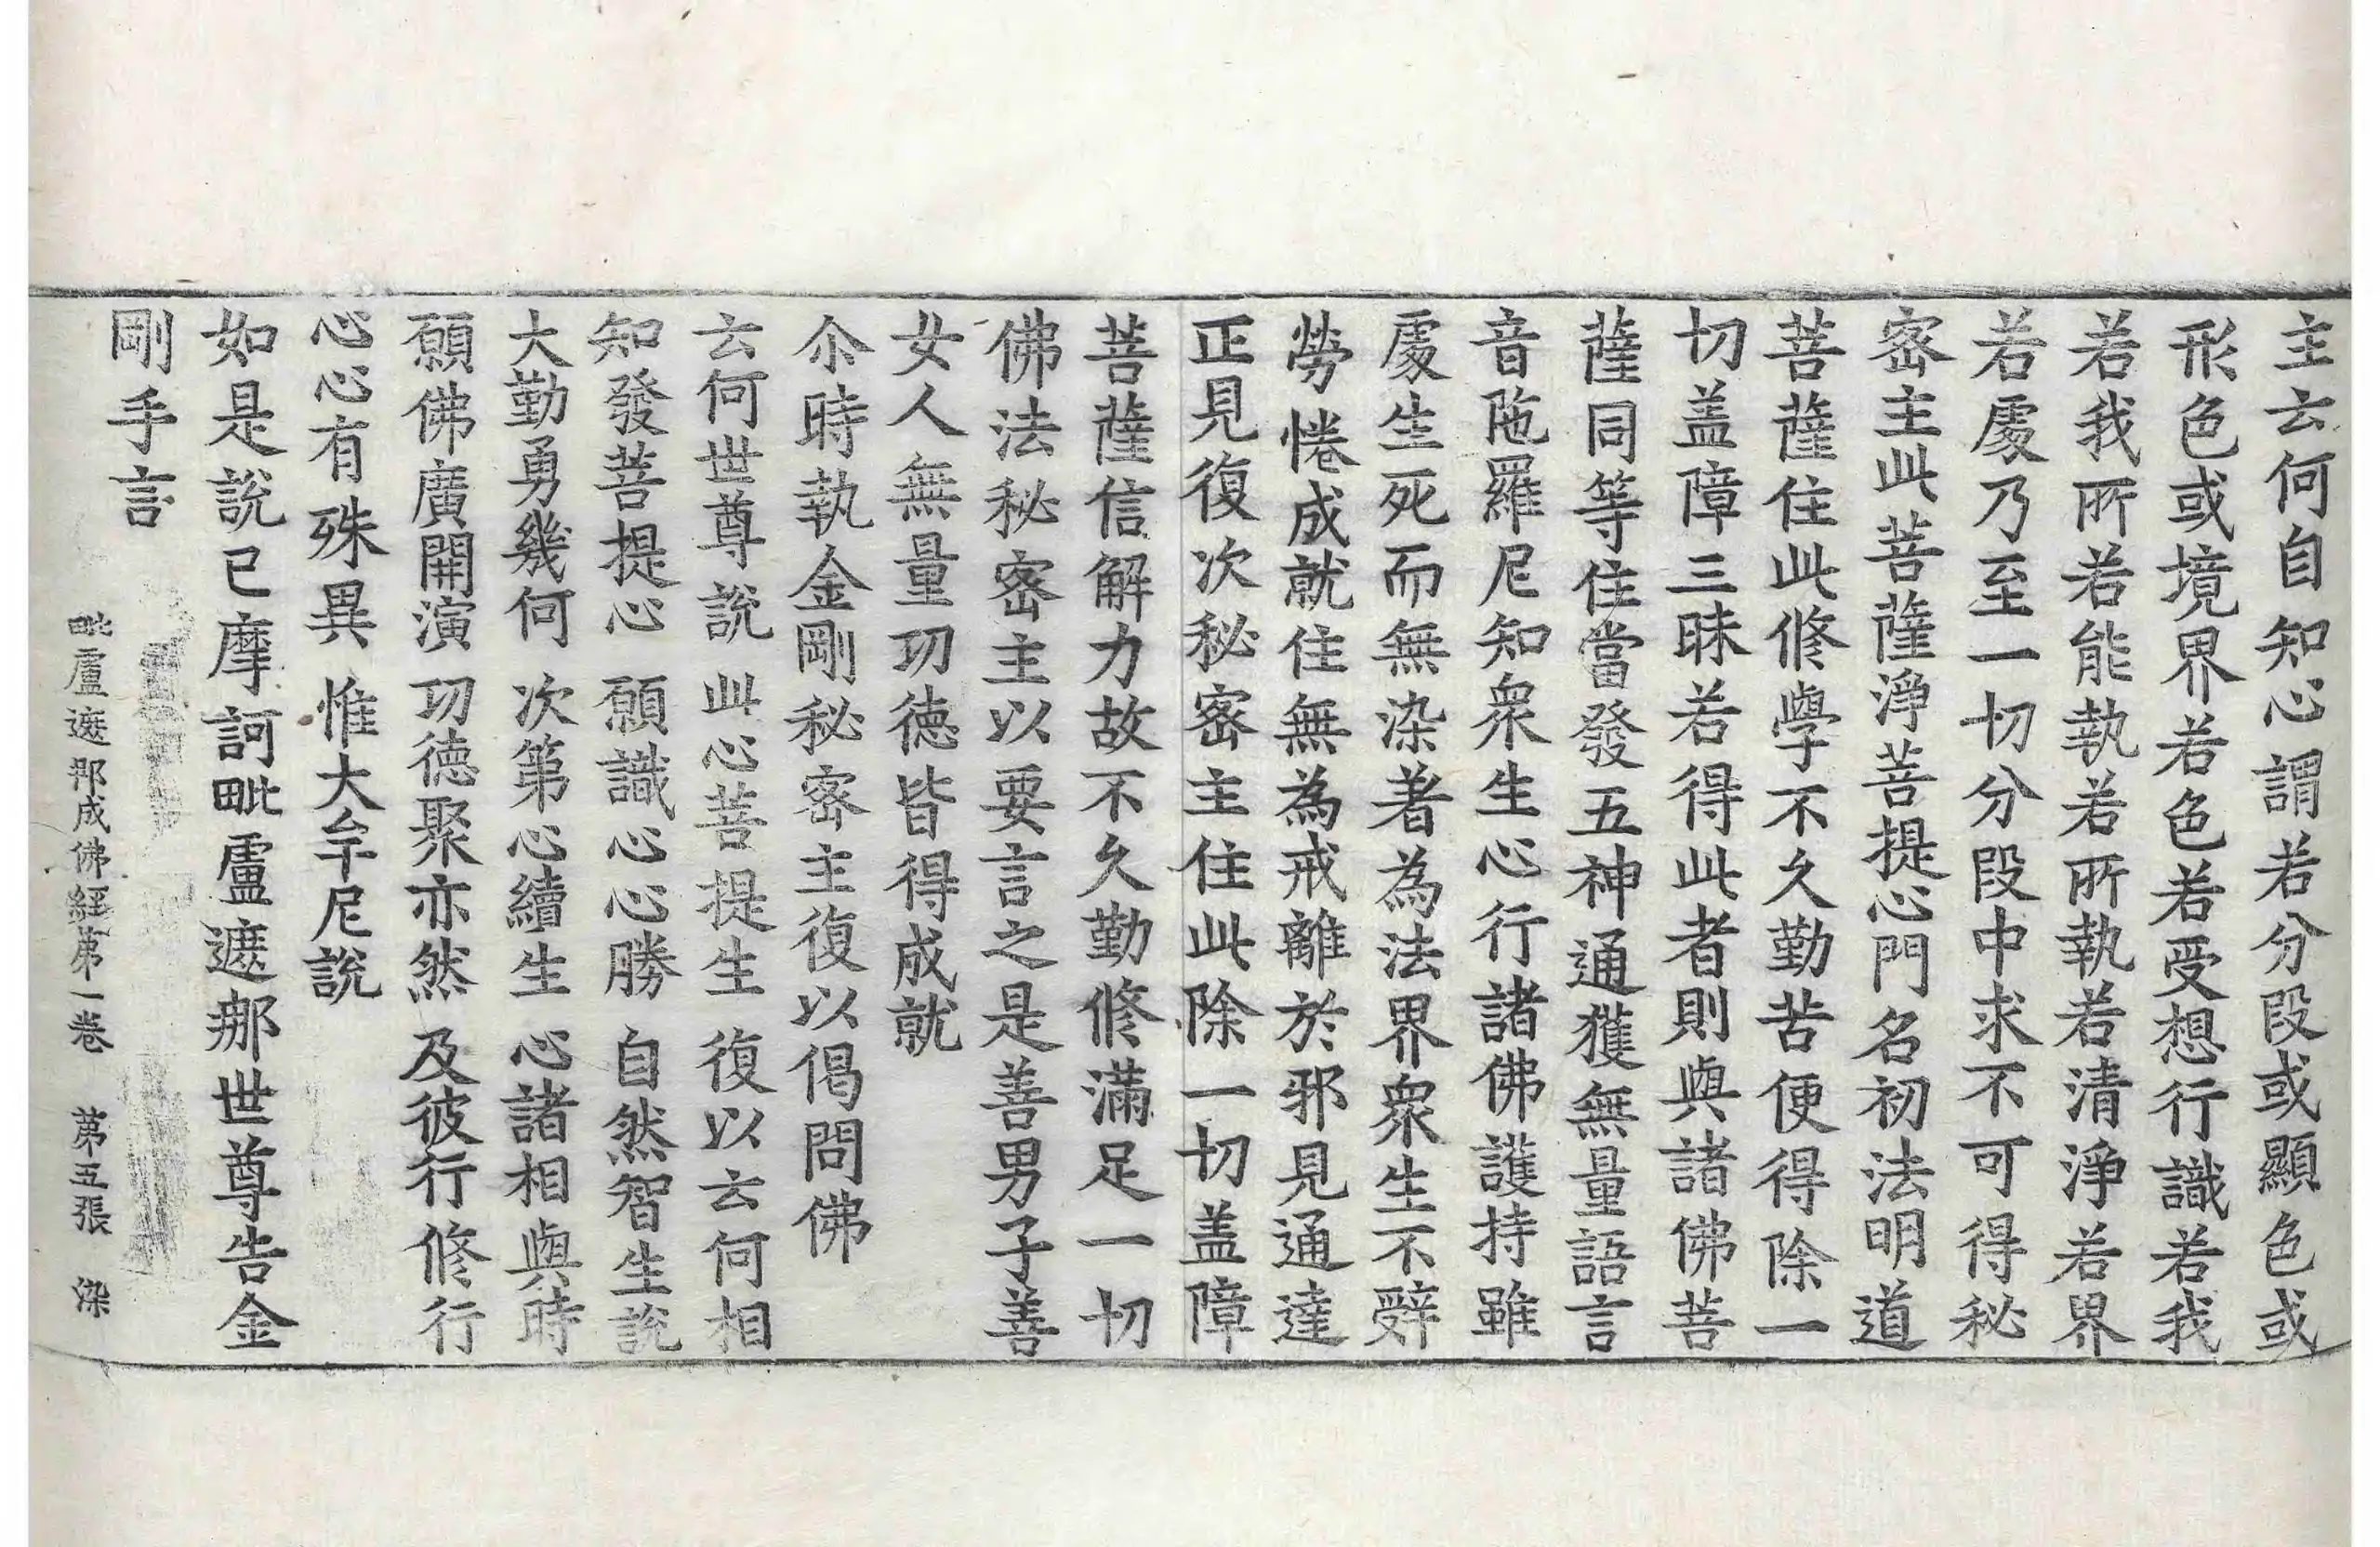 主云何自知心謂若分段或顯色或
形色或境界若色若受想行識若我
若我所若能執若所執若清淨若界
若處乃至一切分段中求不可得秘
密主此菩薩淨菩提心門名初法明道
菩薩住此修學不久勤苦便得除一
切盖障三昧若得此者則與諸佛菩
薩同等住當發五神通獲無量語言
音陁羅尼知衆生心行諸佛護持雖
處生死而無染著為法界衆生不辤
勞惓成就住無為戒離於邪見通達
正見復次秘密主住此除一切盖障
菩薩信解力故不久勤修滿足一切
佛法秘密主以要言之是善男子善
女人無量功德皆得成就
尒時執金剛秘密主復以偈問佛
云何世尊說 此心菩提生 復以云何相
知發菩提心 願識心心勝 自然智生說
大勤勇幾何 次第心續生 心諸相與時
願佛廣開演 功德聚亦然 及彼行修行
心心有殊異 惟大牟尼說
如是說已摩訶毗盧遮那世尊告金
剛手言
毗盧遮那成佛經第一卷 第五張 染